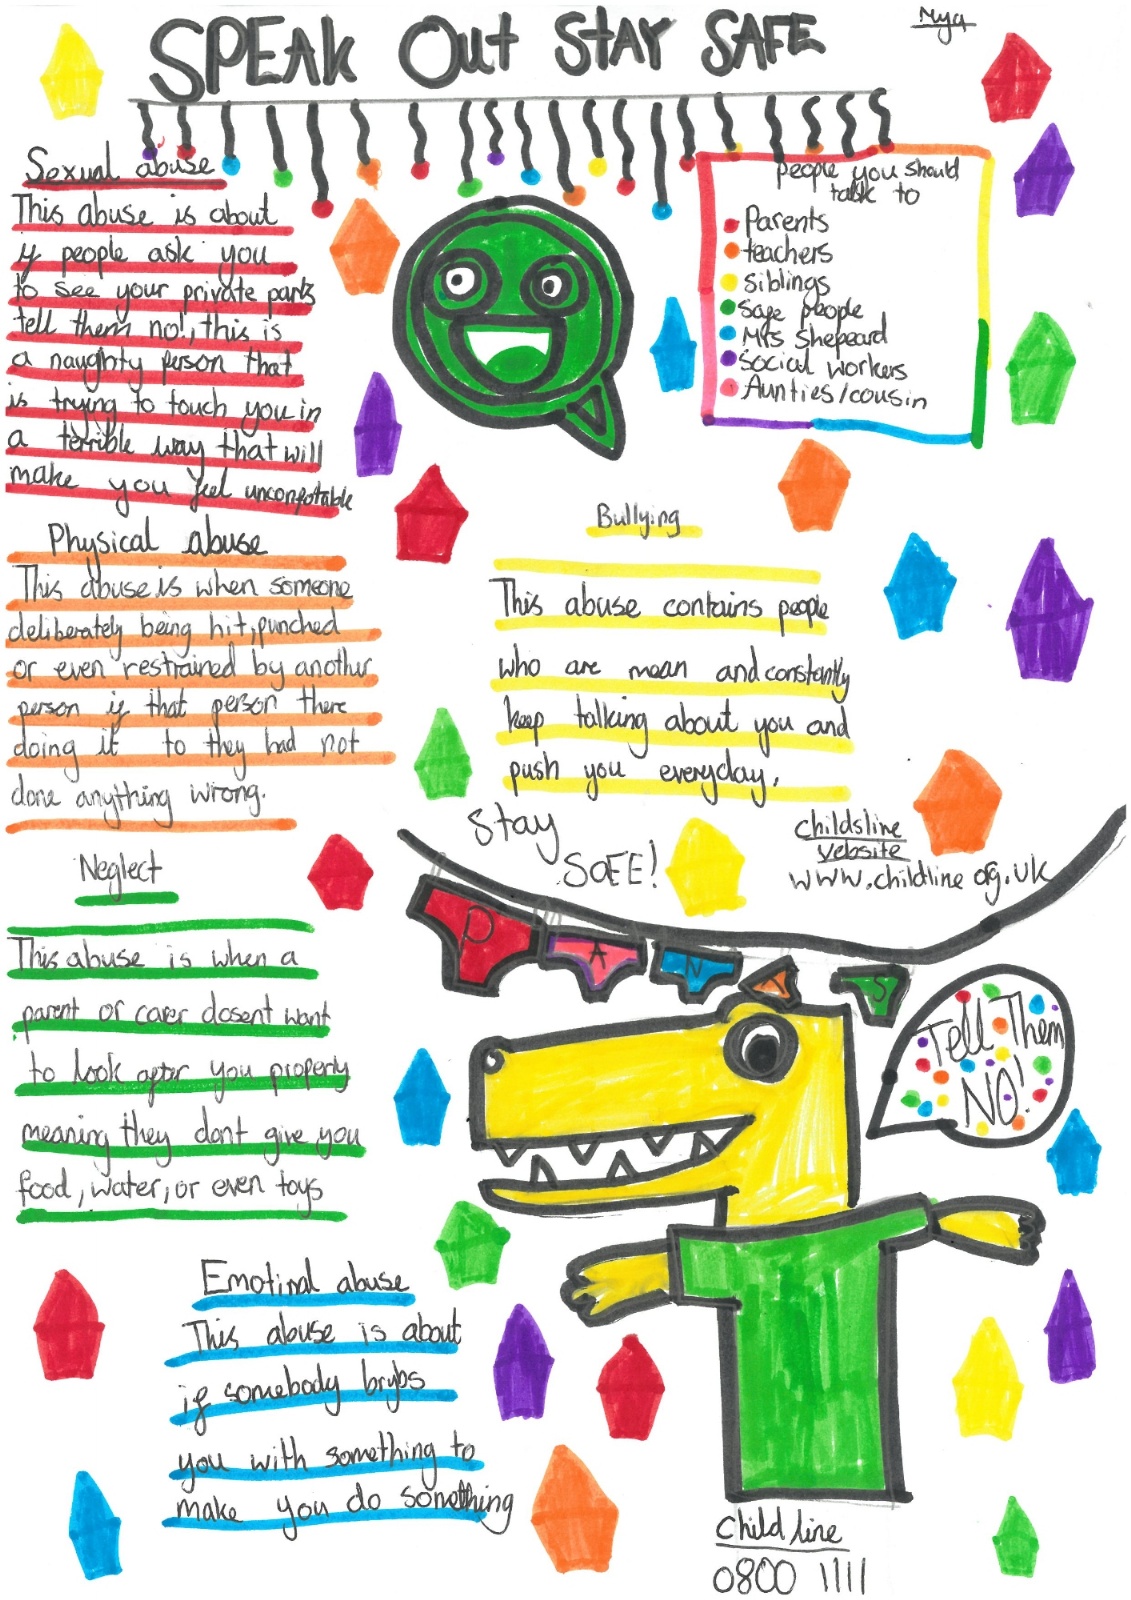 Mya
SPEAK Out STAY SAFE
Sexual abuse
This abuse is about
if people ask you
to see your private parts
tell them no!, this is
a naughty person that
is trying to touch you in
a terrible way that will
make you feel unconfotable
people you should
talk to
Parents
teachers
siblings
Safe people
Mrs Shepeard
Social workers
Aunties/cousin
Physical abuse
This abuse is when someone
deliberately being hit, punched
or even restrained by another
person if that person there
doing it to they had not
done anything wrong.
Bullying
This abuse contains people
who are mean and constantly
keep talking about you and
push you everyday.
Stay
SAFE!
childsline
website
www.childline org.uk
Neglect
This abuse is when a
parent or carer dosent want
to look after you properly
meaning they dont give you
food, water, or even toys
P A N T S
Tell Them
NO!
Emotinal abuse
This abuse is about
if somebody brybs
you with something to
make you do something
Child line
0800 1111